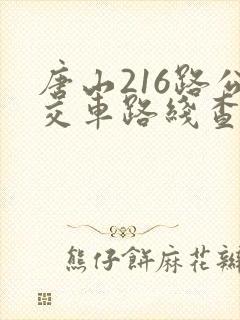 唐山216路公
交車路綫查
熊仔餅麻花瓣